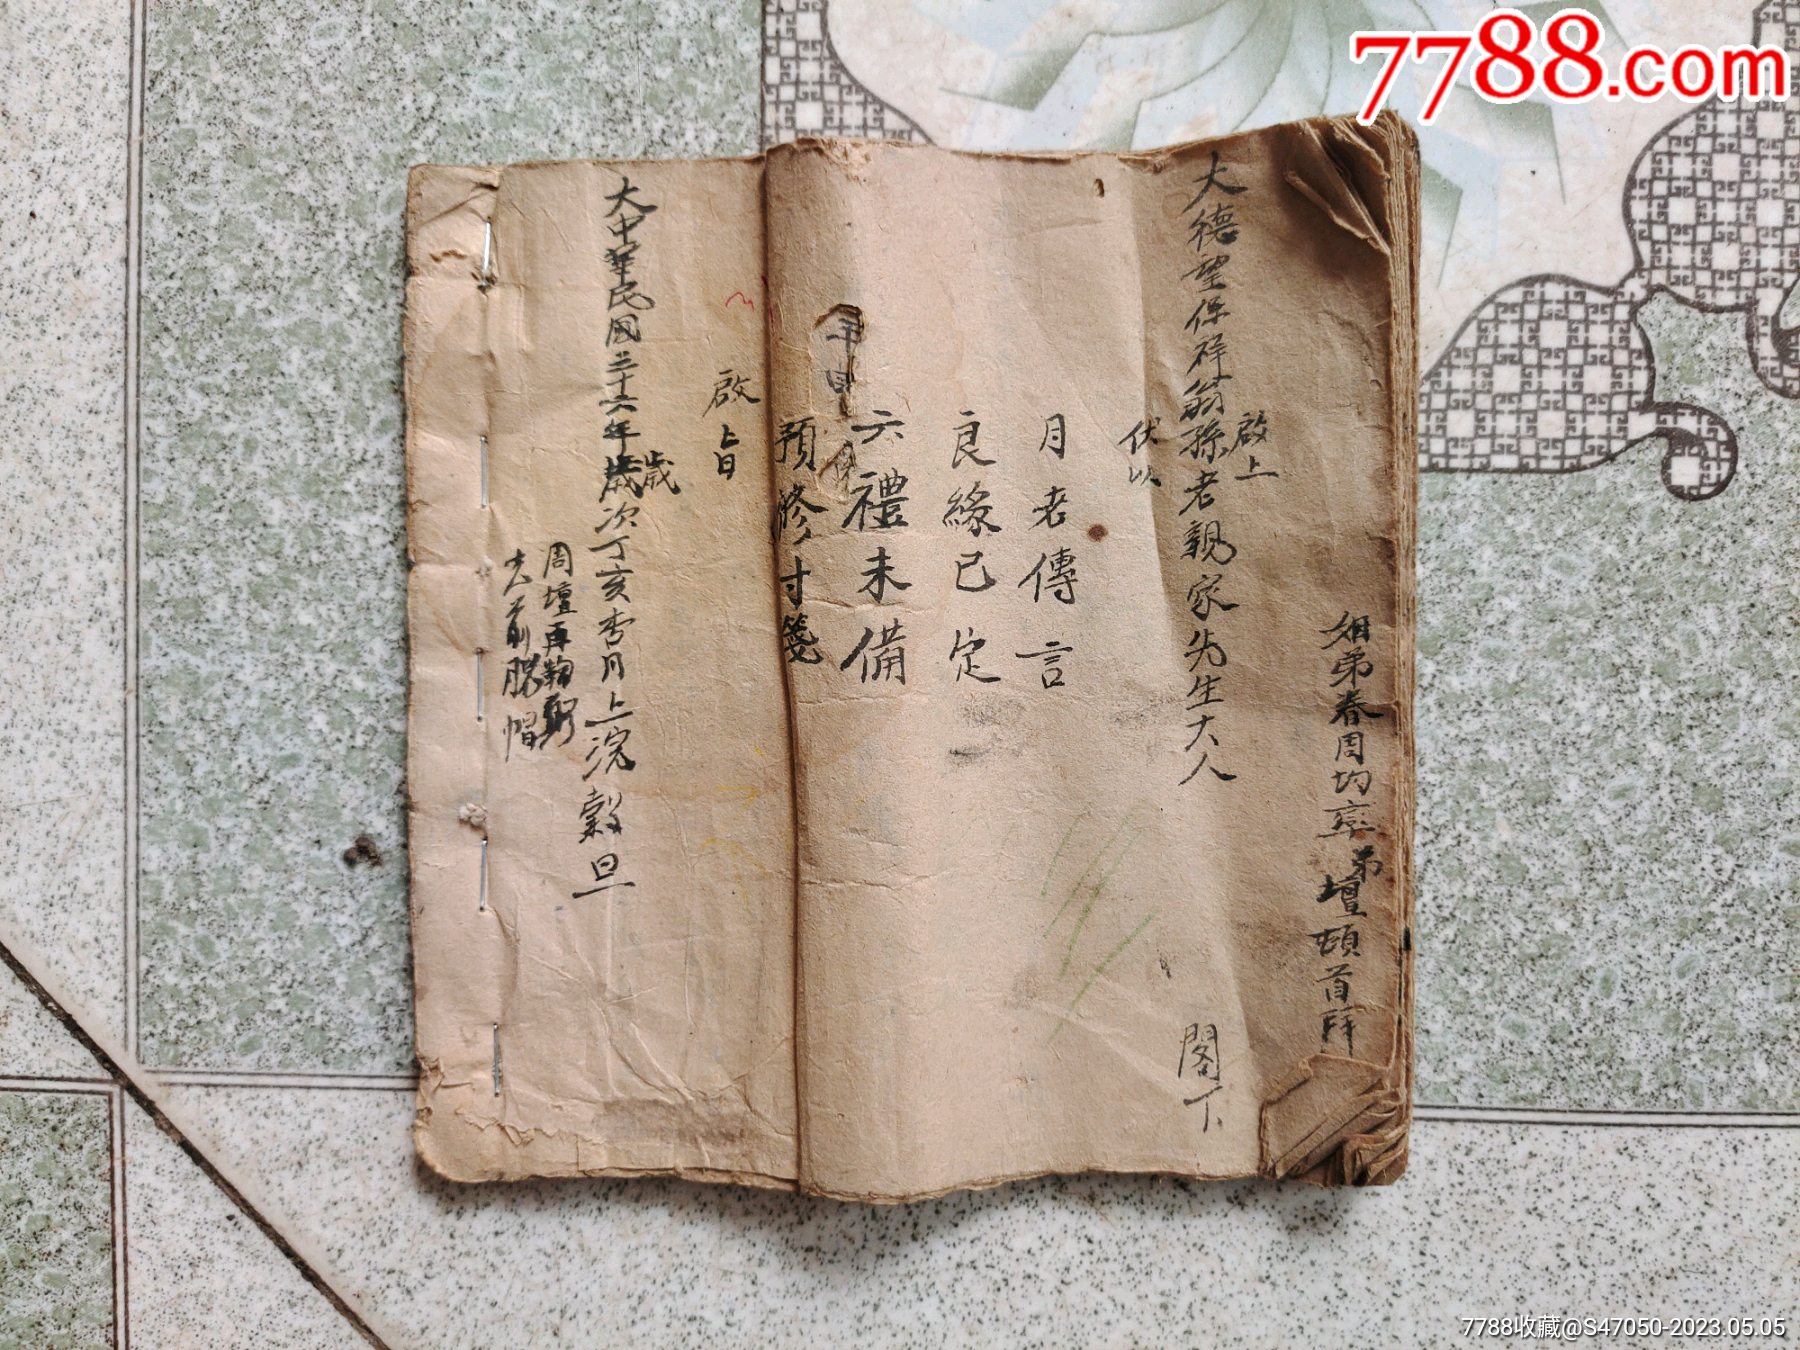 7788.com
姻弟春周均率弟壇頓首拜
啟上
大德望保祥翁孫老親家先生大人
閣下
伏以
月老傳言
良緣已定
六禮未備
預修寸箋
啟
上
大中華民國三十六年歲次丁亥杏月上浣穀旦
歲
周壇再鞠躬
去前脫帽
7788收藏@S47050-2023.05.05